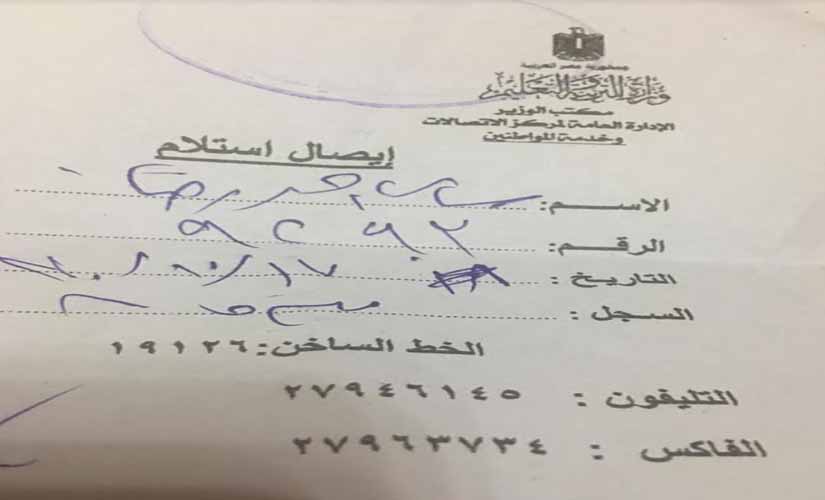 جمهورية مصر العربية
وزارة التربية والتعليم
مكتب الوزير
الإدارة العامة لمركز الاتصالات
وخدمة المواطنين
إيصال استلام
الاســـم :
الرقـــم :
التاريـخ : ١٧/١٠/
السـجـل :
الخط الساخن : ١٩١٢٦
التليفون : ٢٧٩٤٦١٤٥
الفاكس : ٢٧٩٦٣٧٣٤